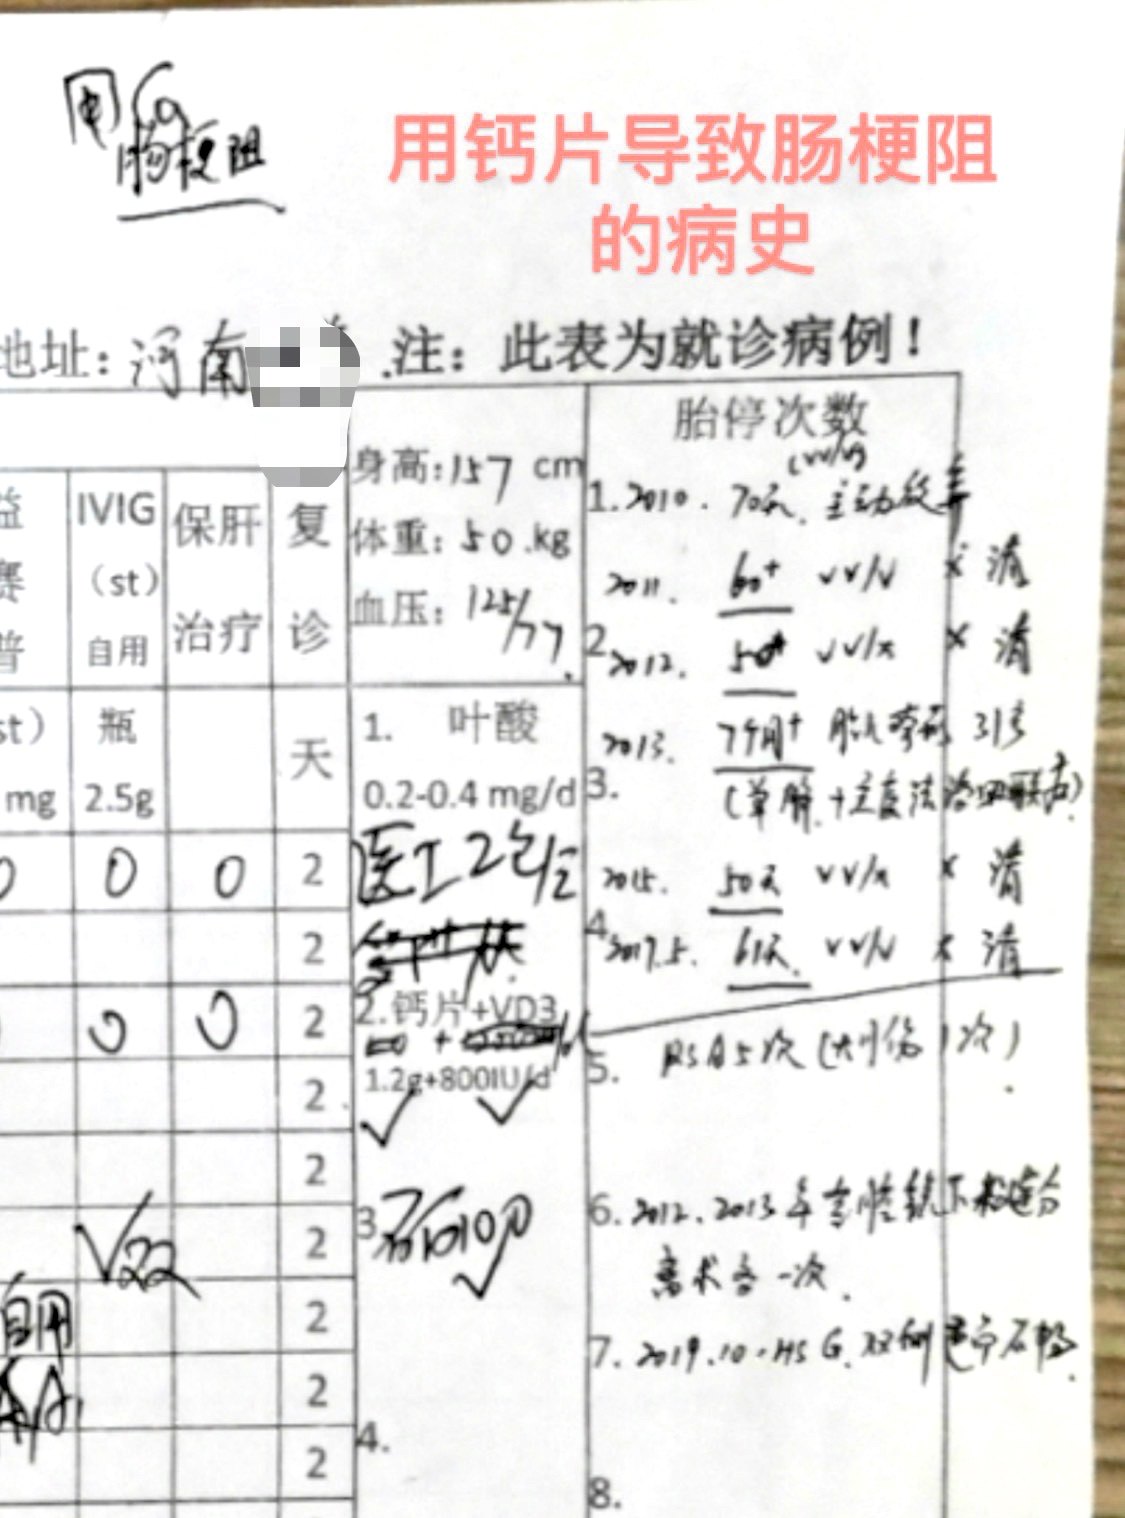 用Ca
肠梗阻
用钙片导致肠梗阻
的病史
地址：河南
注：此表为就诊病例！
益
赛
普
IVIG
（st）
自用
保肝
治疗
复
诊
身高:157 cm
体重：50.kg
血压：125/77
胎停次数
(vv/v)
1.2010. 70天.主动放弃
2011. 60+ vv/v × 清
2.
2012. 50+ vv/x × 清
2013. 7个月+ 胎儿
3.
2015. 50天 vv/x × 清
4.
2017.5. 61天. vv/v × 清
5. RSA5次（大引伤1次）
6. 2012.2013年宫腔镜下粘连分
离术各一次.
7. 2019.10.HSG.双侧
8.
st）
mg
瓶
2.5g
天
1. 叶酸
0.2-0.4 mg/d
2.钙片+VD3
1.2g+800IU/d
3.
4.
0 0 0 2
2
0 0 2
2
2
2
自用 2
2
2